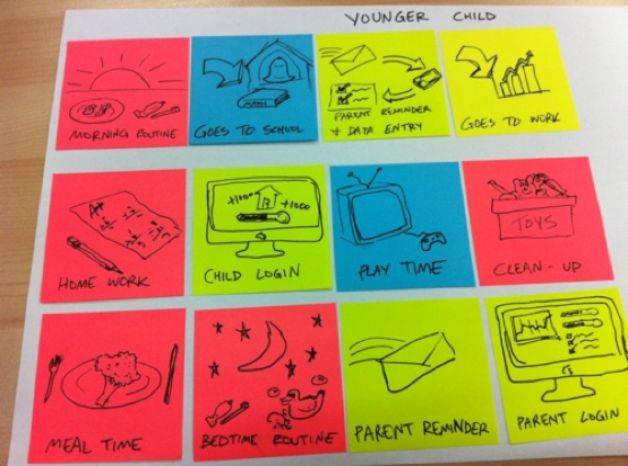 YOUNGER CHILD
MORNING ROUTINE
MATH
GOES TO SCHOOL
PARENT REMINDER
+ DATA ENTRY
GOES TO WORK
A+
HOME WORK
+1000
+1000
CHILD LOGIN
PLAY TIME
TOYS
CLEAN-UP
MEAL TIME
BEDTIME ROUTINE
PARENT REMINDER
PARENT LOGIN